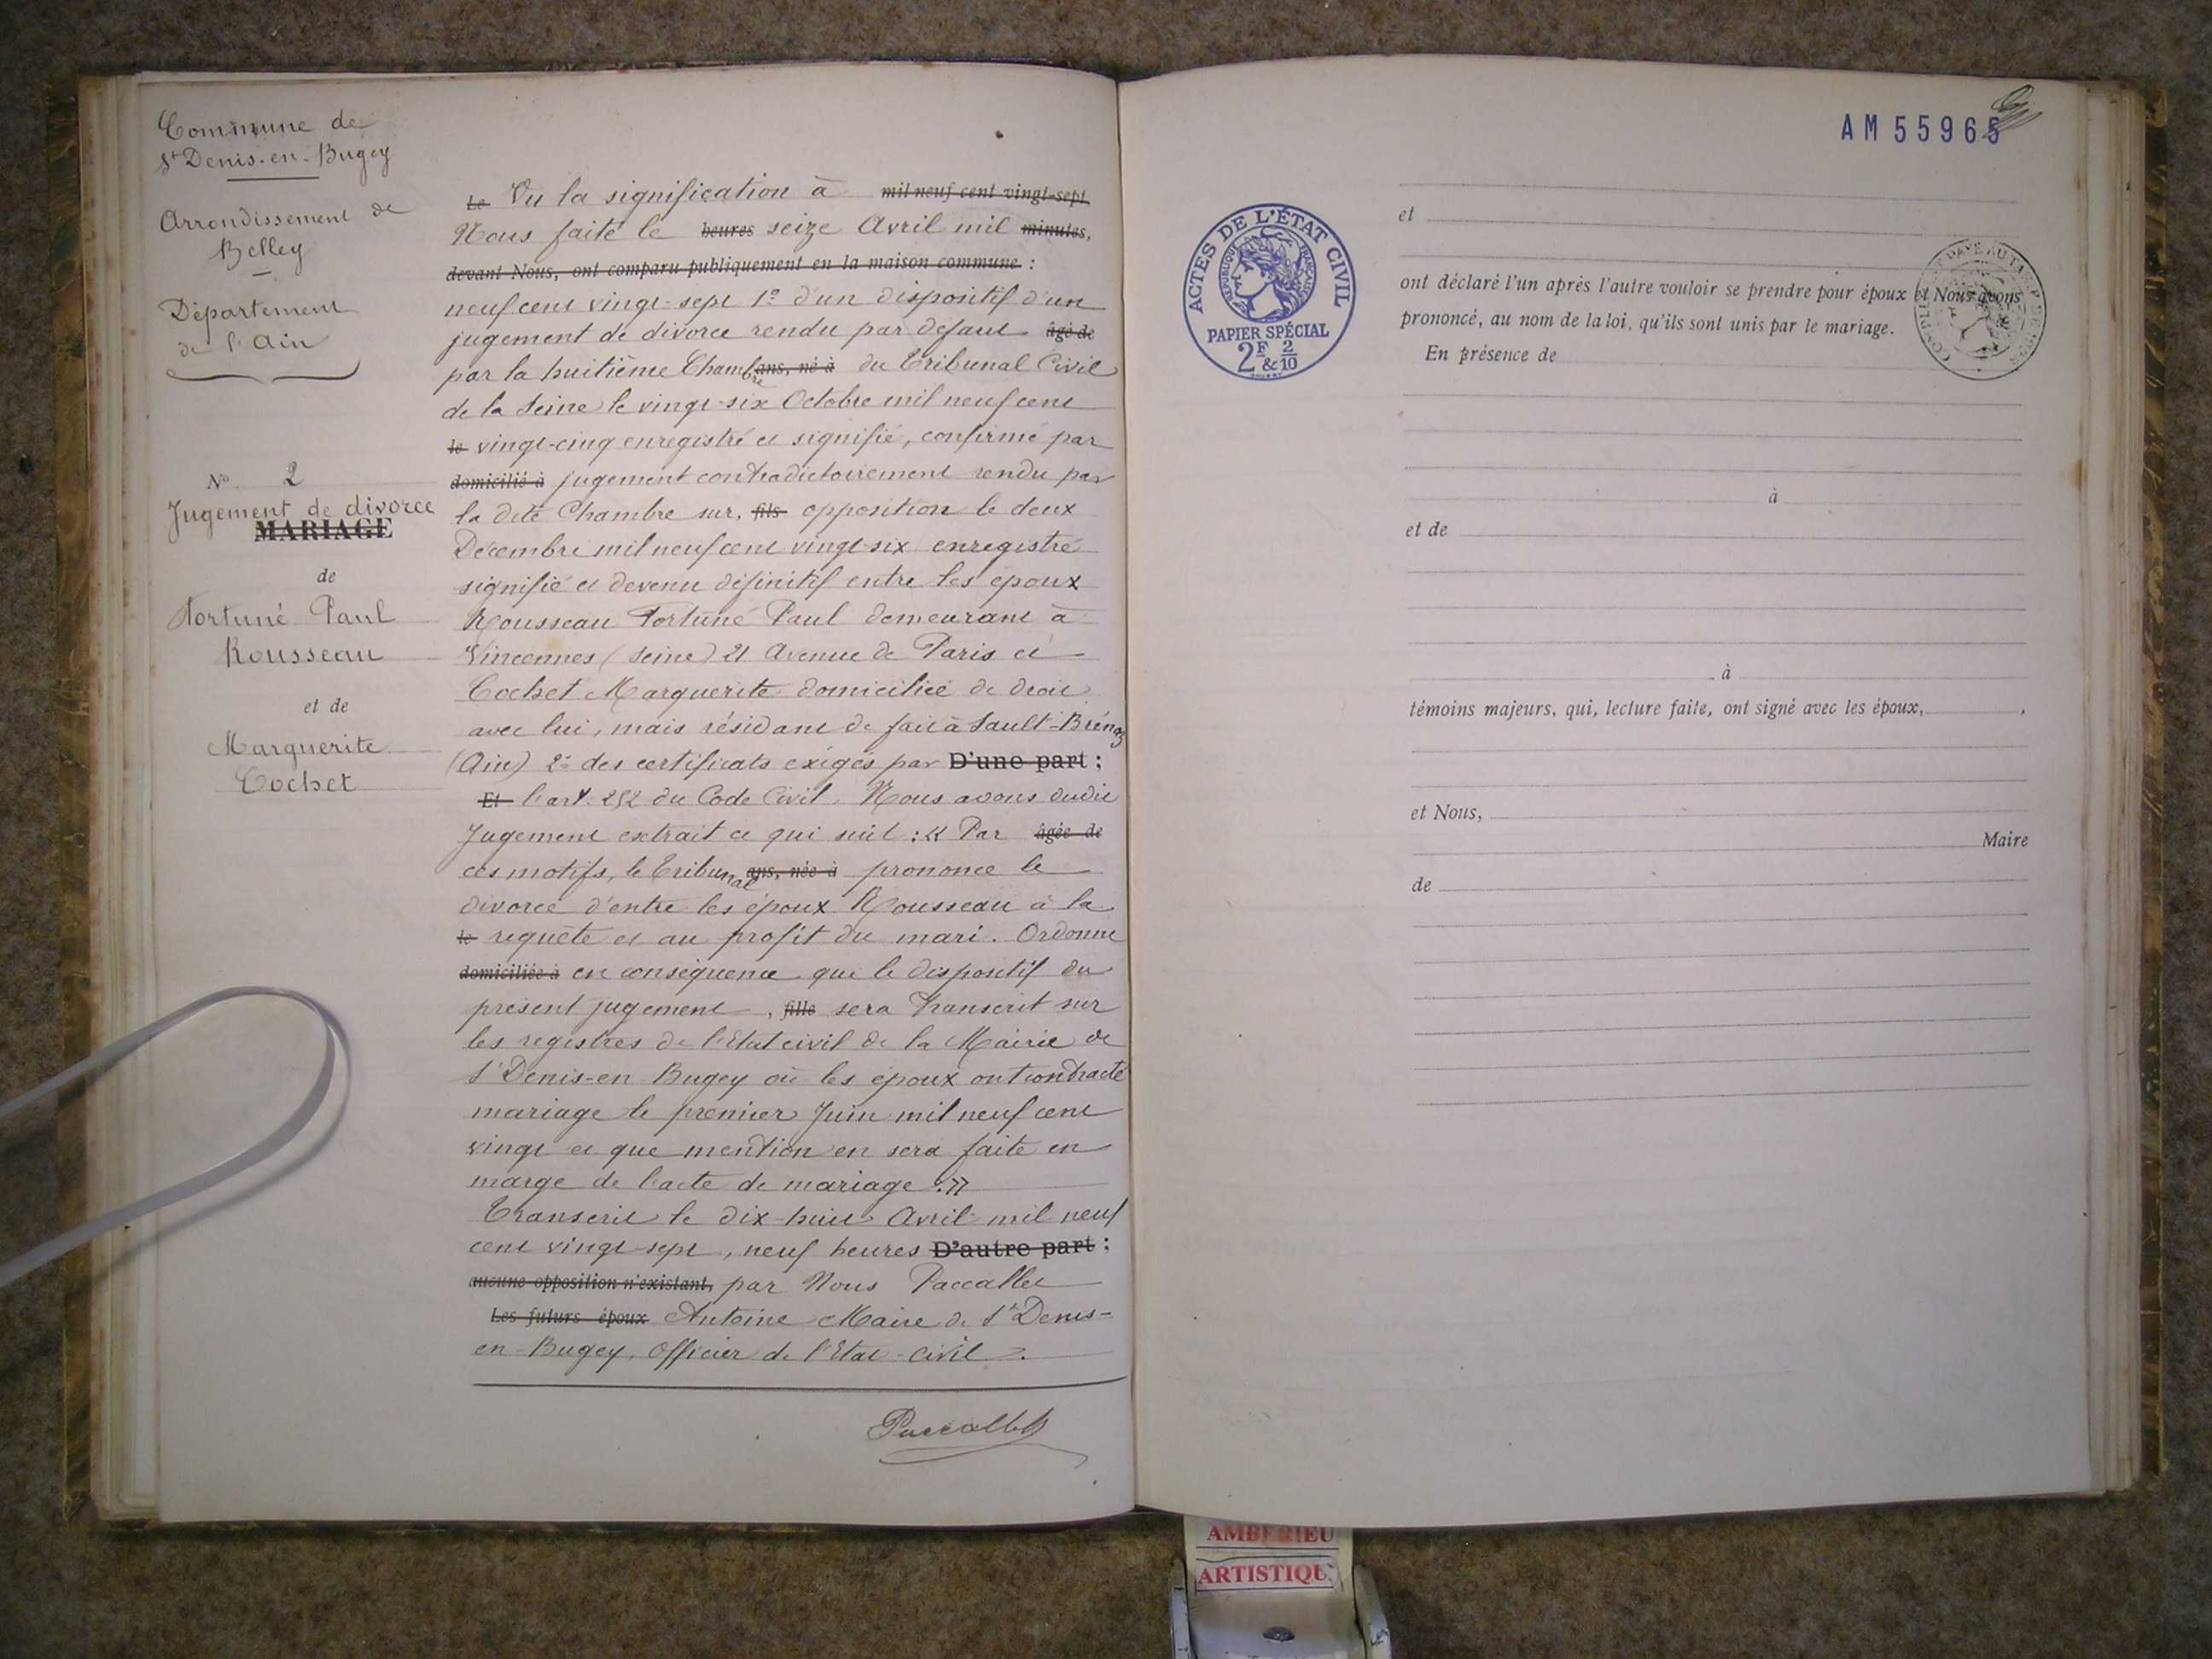 Commune de
St Denis-en-Bugey
Arrondissement de
Belley
Département
de l'Ain
N° 2
Jugement de divorce
MARIAGE
de
Fortuné Paul
Rousseau
et de
Marguerite
Cochet
Le Vu la signification à mil neuf cent vingt-sept,
Nous faite le heures seize Avril mil minutes,
devant Nous, ont comparu publiquement en la maison commune :
neuf cent vingt-sept 1° d'un dispositif d'un
jugement de divorce rendu par défaut âgé de
par la huitième Chambre ans, né à du Tribunal Civil
de la Seine le vingt-six Octobre mil neuf cent
le vingt-cinq enregistré et signifié, confirmé par
domicilié à jugement contradictoirement rendu par
la dite Chambre sur, fils opposition le deux
Décembre mil neuf cent vingt-six enregistré
signifié et devenu définitif entre les époux
Rousseau Fortuné Paul demeurant à
Vincennes (Seine) 21 Avenue de Paris et
Cochet Marguerite domiciliée de droit
avec lui, mais résidant de fait à Sault-Brénaz
(Ain) 2° des certificats exigés par D'une part ;
Et l'art. 252 du Code Civil. Nous avons dudit
Jugement extrait ce qui suit : « Par âgée de
ces motifs, le Tribunal ans, née à prononce le
divorce d'entre les époux Rousseau à la
le requête et au profit du mari. Ordonne
domiciliée à en conséquence que le dispositif du
présent jugement, fille sera transcrit sur
les registres de l'Etat civil de la Mairie de
St Denis-en Bugey où les époux ont contracté
mariage le premier Juin mil neuf cent
vingt et que mention en sera faite en
marge de l'acte de mariage. »
Transcrit le dix-huit Avril mil neuf
cent vingt-sept, neuf heures D'autre part ;
aucune opposition n'existant, par Nous Paccallet
Les futurs époux Antoine Maire de St Denis-
en-Bugey, Officier de l'Etat-civil.
Paccallet
AM 55965
ACTES DE L'ÉTAT CIVIL
RÉPUBLIQUE FRANÇAISE
PAPIER SPÉCIAL
2F & 2/10
et
ont déclaré l'un après l'autre vouloir se prendre pour époux et Nous avons
prononcé, au nom de la loi, qu'ils sont unis par le mariage.
En présence de
à
et de
à
témoins majeurs, qui, lecture faite, ont signé avec les époux, ,
et Nous,
Maire
de
AMBERIEU
ARTISTIQU